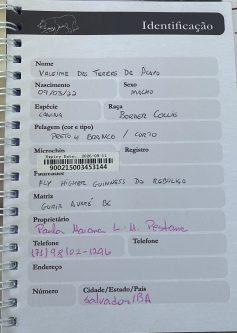 Identificação
Nome
Valeime das Terras de Prado
Nascimento Sexo
09/03/22 Macho
Espécie Raça
Canina Border Collie
Pelagem (cor e tipo)
Preto e Branco / Curto
Microchip Registro
Expiry Date: 2026-09-11
900215003453144
Fly Higher Guinness do Rebuliço
Matriz
Guria Avaré BC
Proprietário
Paula Maiana L. M. Pestana
Telefone Telefone
(71) 98102-1296
Endereço
Número Cidade/Estado/País
Salvador/BA